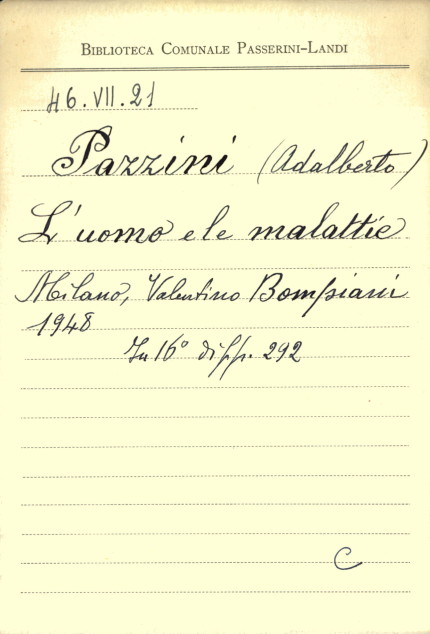 BIBLIOTECA COMUNALE PASSERINI-LANDI
46.VII.21
Pazzini (Adalberto)
L'uomo e le malattie
Milano, Valentino Bompiani
1948
In 16° di pp. 292
C